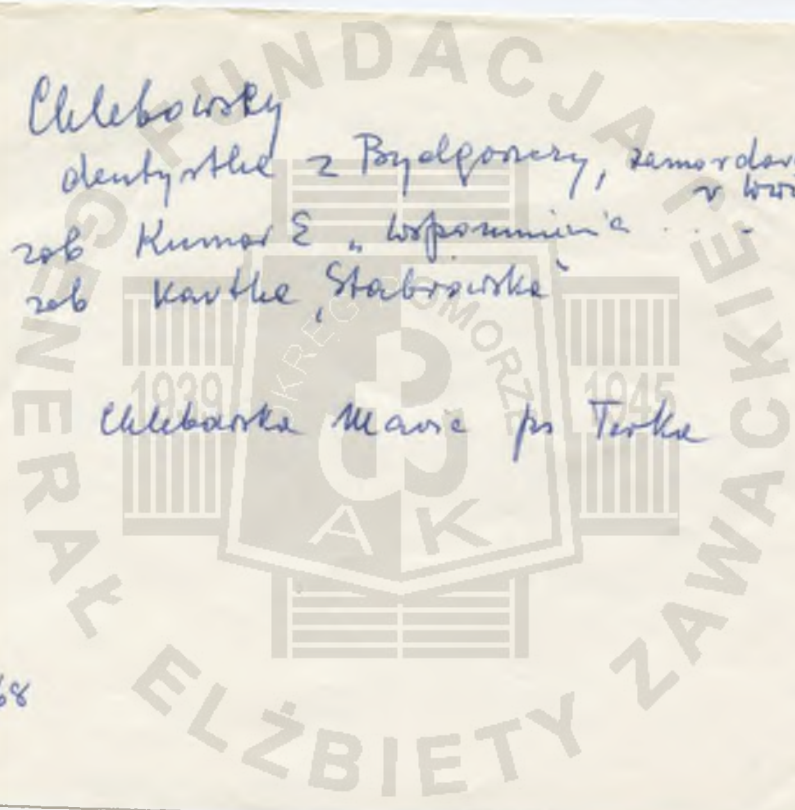 Chlebowsky
dentystka z Bydgoszczy, zamordow
w
zob Kumor E „Wspomnienia . . . -
zob kartka „Stabrowska"
Chlebowska Maria ps Terka
68
FUNDACJA GENERAŁ ELŻBIETY ZAWACKIEJ
OKRĘG POMORZE
1939 1945
AK